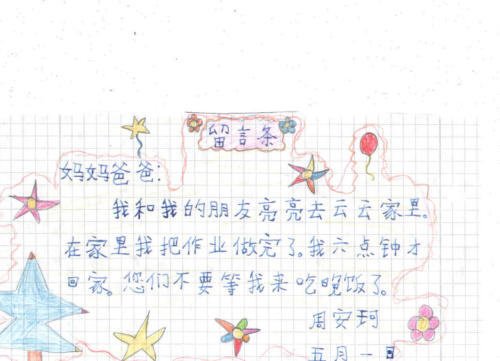 留言条
妈妈爸爸:
我和我的朋友亮亮去云云家里。
在家里我把作业做完了。我六点钟才
回家。您们不要等我来吃晚饭了。
周安珂
五月一日